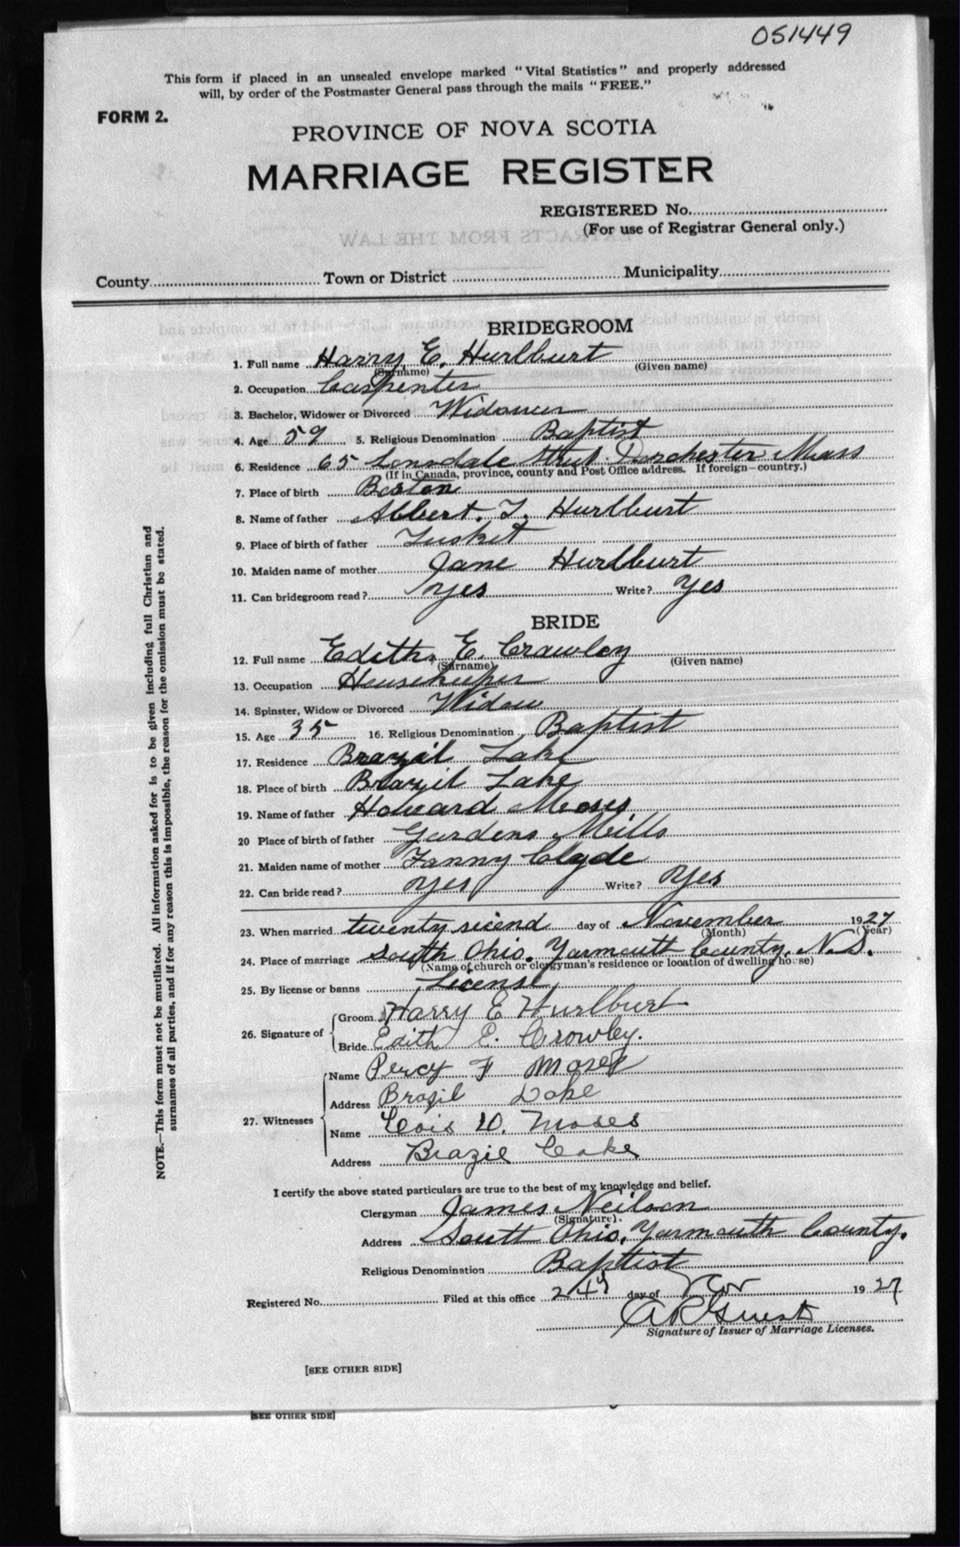 051449
This form if placed in an unsealed envelope marked "Vital Statistics" and properly addressed
will, by order of the Postmaster General pass through the mails "FREE."
FORM 2.
PROVINCE OF NOVA SCOTIA
MARRIAGE REGISTER
REGISTERED No.
(For use of Registrar General only.)
EXTRACTS FROM THE LAW
County Town or District Municipality
BRIDEGROOM
1. Full name Harry E. Hurlburt
(Surname) (Given name)
2. Occupation Carpenter
3. Bachelor, Widower or Divorced Widower
4. Age 59 5. Religious Denomination Baptist
6. Residence 65 Lonsdale Street Dorchester Mass
(If in Canada, province, county and Post Office address. If foreign—country.)
7. Place of birth Boston
8. Name of father Albert. T. Hurlburt
9. Place of birth of father Tusket
10. Maiden name of mother Jane Hurlburt
11. Can bridegroom read? Yes Write? Yes
BRIDE
12. Full name Edith E. Crawley
(Surname) (Given name)
13. Occupation Housekeeper
14. Spinster, Widow or Divorced Widow
15. Age 35 16. Religious Denomination Baptist
17. Residence Brazil Lake
18. Place of birth Brazil Lake
19. Name of father Howard Moses
20 Place of birth of father Gardens Mills
21. Maiden name of mother Fanny Clyde
22. Can bride read? Yes Write? Yes
23. When married twenty secind day of November 1927
(Month) (Year)
24. Place of marriage South Ohio. Yarmouth County. N.S.
(Name of church or clergyman's residence or location of dwelling house)
25. By license or banns License
26. Signature of Groom Harry E Hurlburt
Bride Edith E. Crowley.
27. Witnesses Name Percy F Moses
Address Brazil Lake
Name Lois D. Moses
Address Brazil Lake
I certify the above stated particulars are true to the best of my knowledge and belief.
Clergyman James Neilson
(Signature).
Address South Ohio. Yarmouth County.
Religious Denomination Baptist
Registered No. Filed at this office 24 day of Nov 1927
Signature of Issuer of Marriage Licenses.
[SEE OTHER SIDE]
[SEE OTHER SIDE]
NOTE.—This form must not be mutilated. All information asked for is to be given including full Christian and
surnames of all parties, and if for any reason this is impossible, the reason for the omission must be stated.